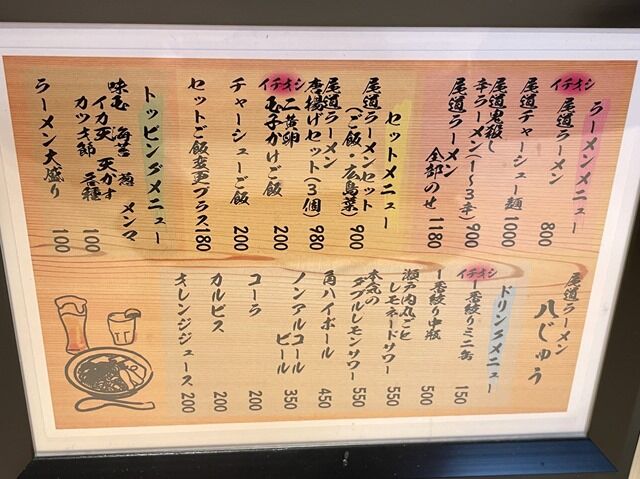 ラーメンメニュー
イチオシ
尾道ラーメン 800
尾道チャーシュー麺 1000
尾道黒殺し
辛ラーメン(1〜3辛) 900
尾道ラーメン
全部のせ 1180
セットメニュー
尾道ラーメンセット
(ご飯・広島菜) 900
尾道ラーメン
唐揚げセット(3個) 980
イチオシ
二黄卵
玉子かけご飯 200
チャーシューご飯 200
セットご飯変更プラス 180
トッピングメニュー
味玉 海苔 葱 メンマ
イカ天 天かす
カツオ節 各種 100
ラーメン大盛り 100
尾道ラーメン
八じゅう
ドリンクメニュー
イチオシ
一番絞りミニ缶 150
一番絞り中瓶 500
瀬戸内丸ごと
レモネードサワー 550
本気の
ダブルレモンサワー 550
角ハイボール 450
ノンアルコール
ビール 350
コーラ 200
カルピス 200
オレンジジュース 200